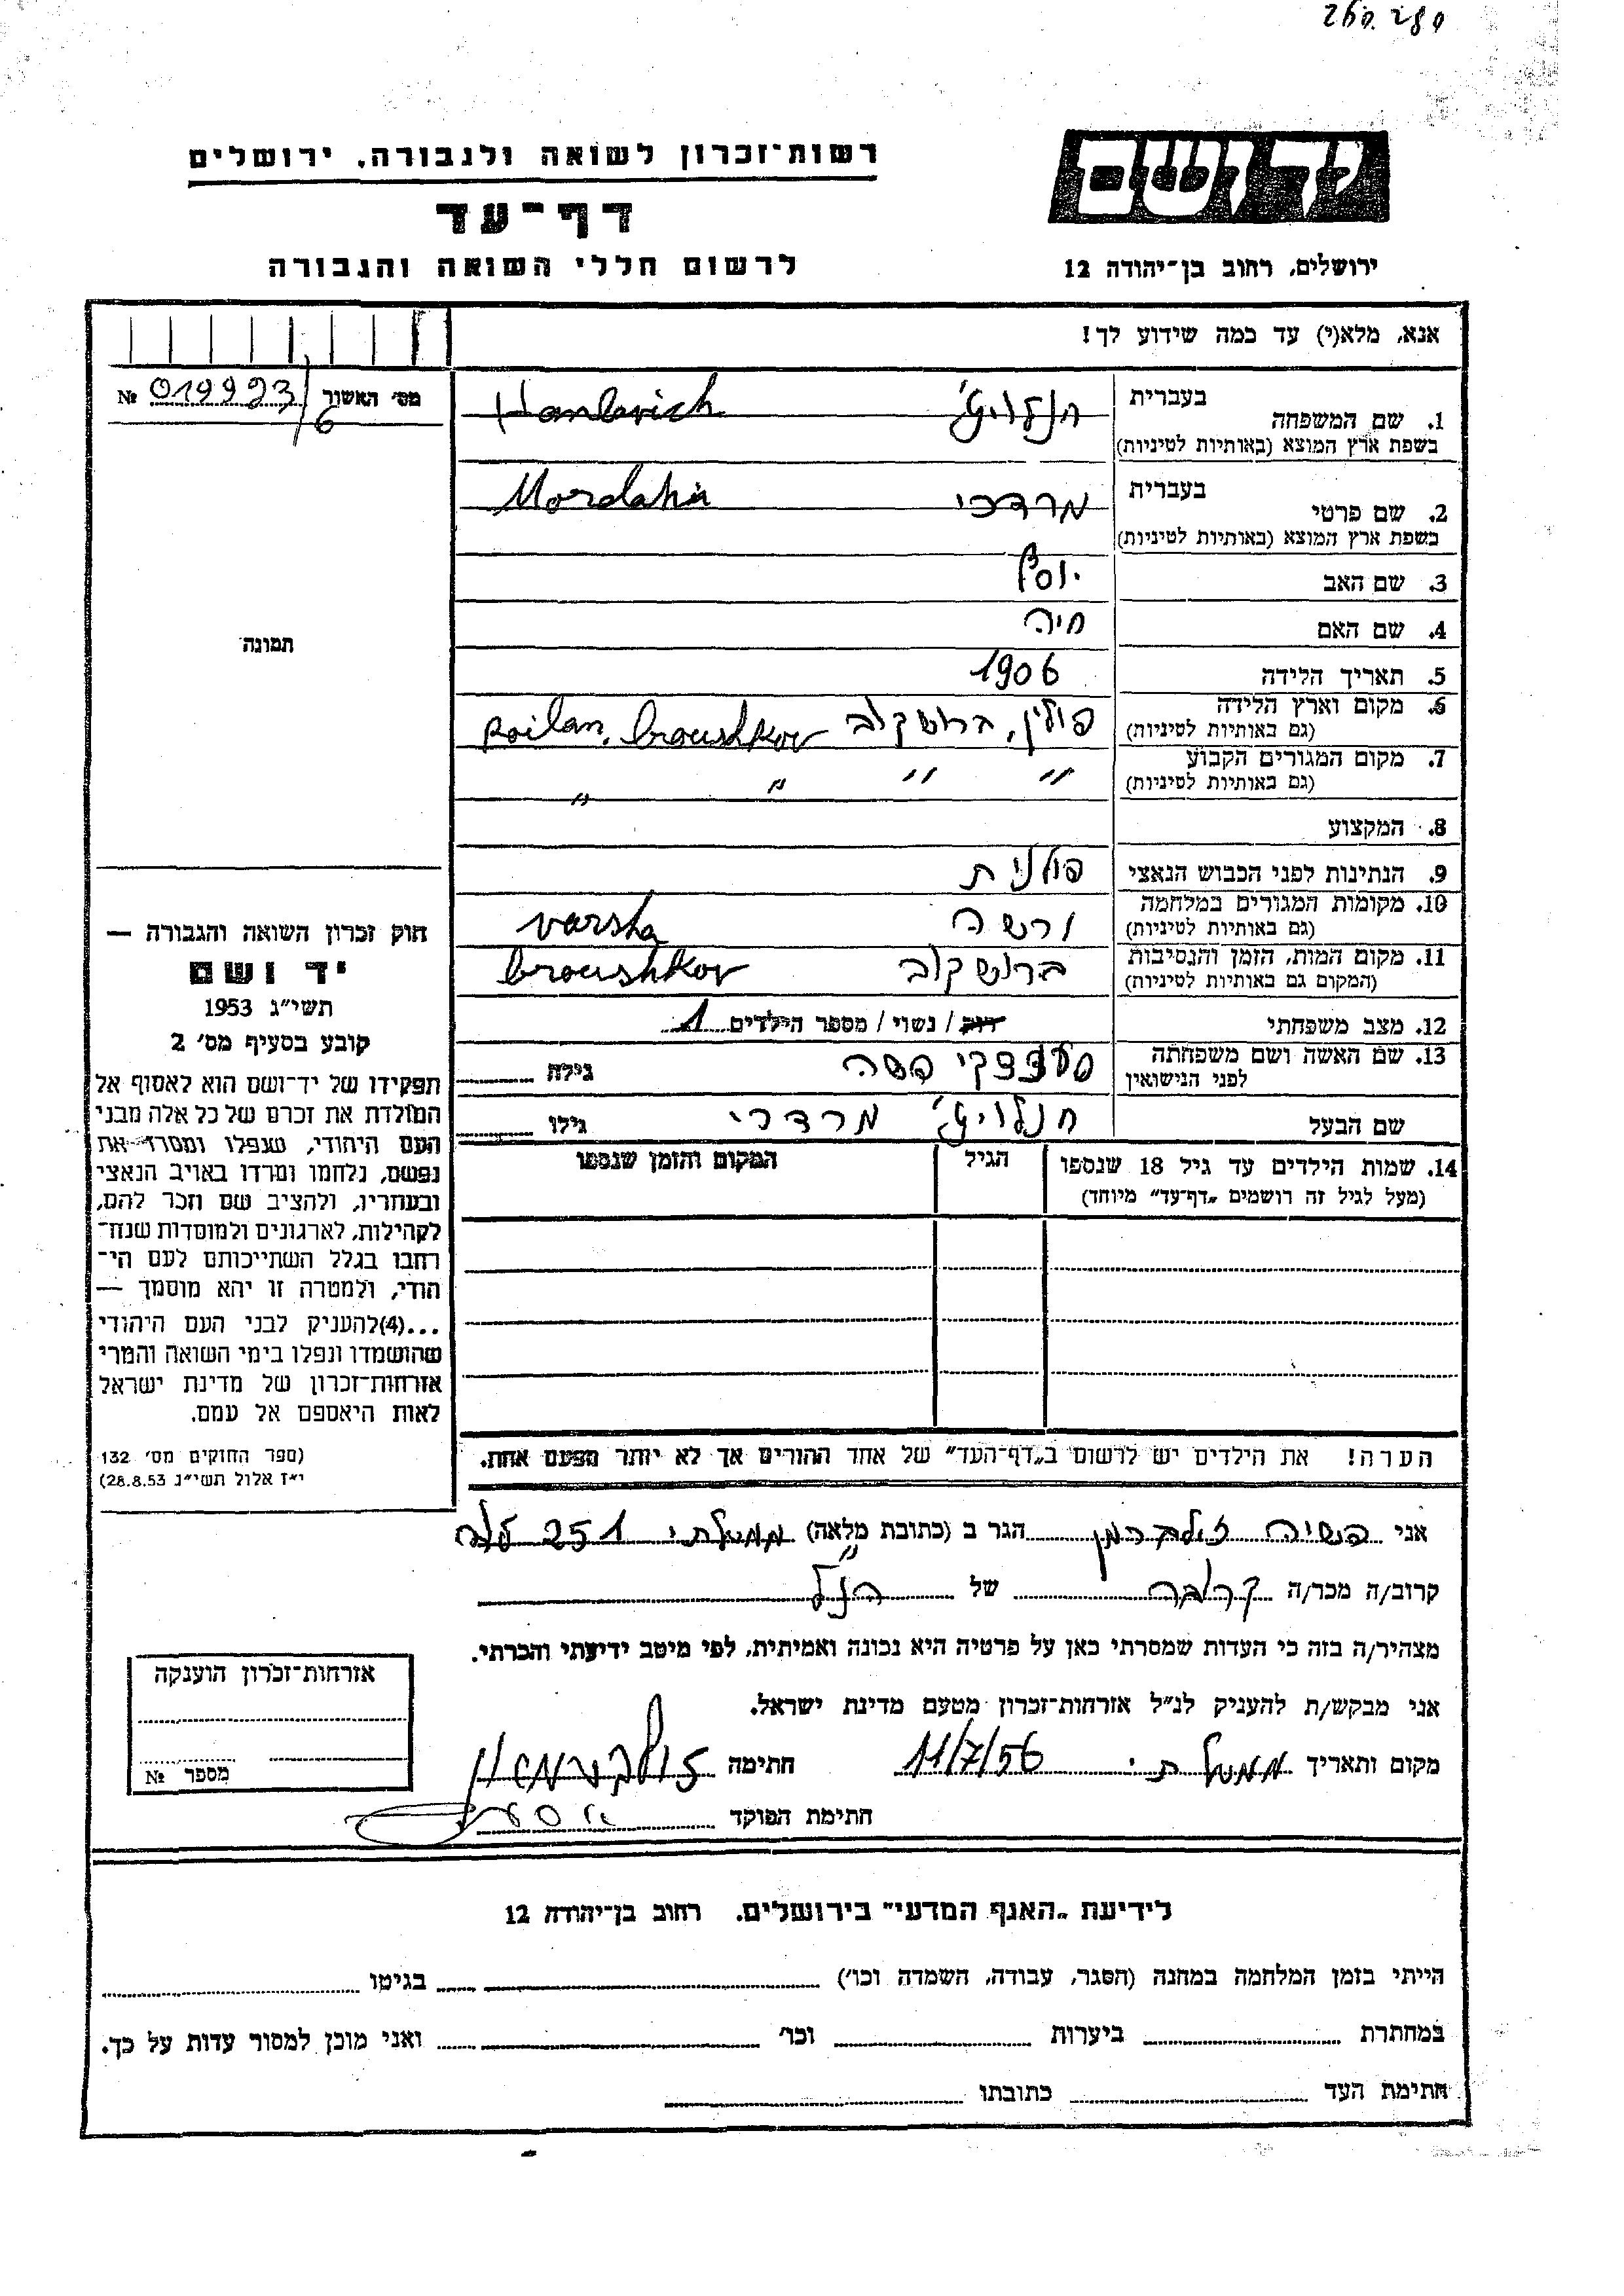 רשות־זכרון לשואה ולגבורה, ירושלים
יד ושם
דף־עד
לרשום חללי השואה והגבורה
ירושלים, רחוב בן־יהודה 12
אנא, מלא(י) עד כמה שידוע לך!
מס' האשור № 019993/6
1. שם המשפחה בעברית הנלויץ' Hanlevich
בשפת ארץ המוצא (באותיות לטיניות)
2. שם פרטי בעברית מרדכי Mordahi
בשפת ארץ המוצא (באותיות לטיניות)
3. שם האב יוסף
4. שם האם חיה
5. תאריך הלידה 1906
6. מקום וארץ הלידה פולין, ברושקוב poilan, broushkov
(גם באותיות לטיניות)
7. מקום המגורים הקבוע " " " "
(גם באותיות לטיניות)
8. המקצוע
9. הנתינות לפני הכבוש הנאצי פולנית
10. מקומות המגורים במלחמה ורשה varsha
(גם באותיות לטיניות)
11. מקום המות, הזמן והנסיבות ברושקוב broushkov
(המקום גם באותיות לטיניות)
12. מצב משפחתי רווק / נשוי / מספר הילדים 1
13. שם האשה ושם משפחתה
לפני הנישואין גילה
שם הבעל חנלויץ' מרדכי גילו
14. שמות הילדים עד גיל 18 שנספו הגיל המקום והזמן שנספו
(מעל לגיל זה רושמים „דף־עד" מיוחד)
הערה! את הילדים יש לרשום ב„דף־העד" של אחד ההורים אך לא יותר מפעם אחת.
תמונה
חוק זכרון השואה והגבורה —
יד ושם
תשי"ג 1953
קובע בסעיף מס' 2
תפקידו של יד־ושם הוא לאסוף אל
המולדת את זכרם של כל אלה מבני
העם היהודי, שנפלו ומסרו את
נפשם, נלחמו ומרדו באויב הנאצי
ובעוזריו, ולהציב שם וזכר להם,
לקהילות, לארגונים ולמוסדות שנח־
רבו בגלל השתייכותם לעם הי־
הודי, ולמטרה זו יהא מוסמך —
...(4)להעניק לבני העם היהודי
שהושמדו ונפלו בימי השואה והמרי
אזרחות־זכרון של מדינת ישראל
לאות היאספם אל עמם.
(ספר החוקים מס' 132
י"ז אלול תשי"ג 28.8.53)
אני זילברמן הגר ב (כתובת מלאה) ממשלתי 251
קרוב/ה מכר/ה קרובה של הנ"ל
מצהיר/ה בזה כי העדות שמסרתי כאן על פרטיה היא נכונה ואמיתית, לפי מיטב ידיעתי והכרתי.
אני מבקש/ת להעניק לנ"ל אזרחות־זכרון מטעם מדינת ישראל.
מקום ותאריך ממשלתי 11/7/56 חתימה
חתימת הפוקד
אזרחות־זכרון הוענקה
מספר №
לידיעת „האגף המדעי" בירושלים. רחוב בן־יהודה 12
הייתי בזמן המלחמה במחנה (הסגר, עבודה, השמדה וכו') בגיטו
במחתרת ביערות וכו' ואני מוכן למסור עדות על כך.
חתימת העד כתובתו